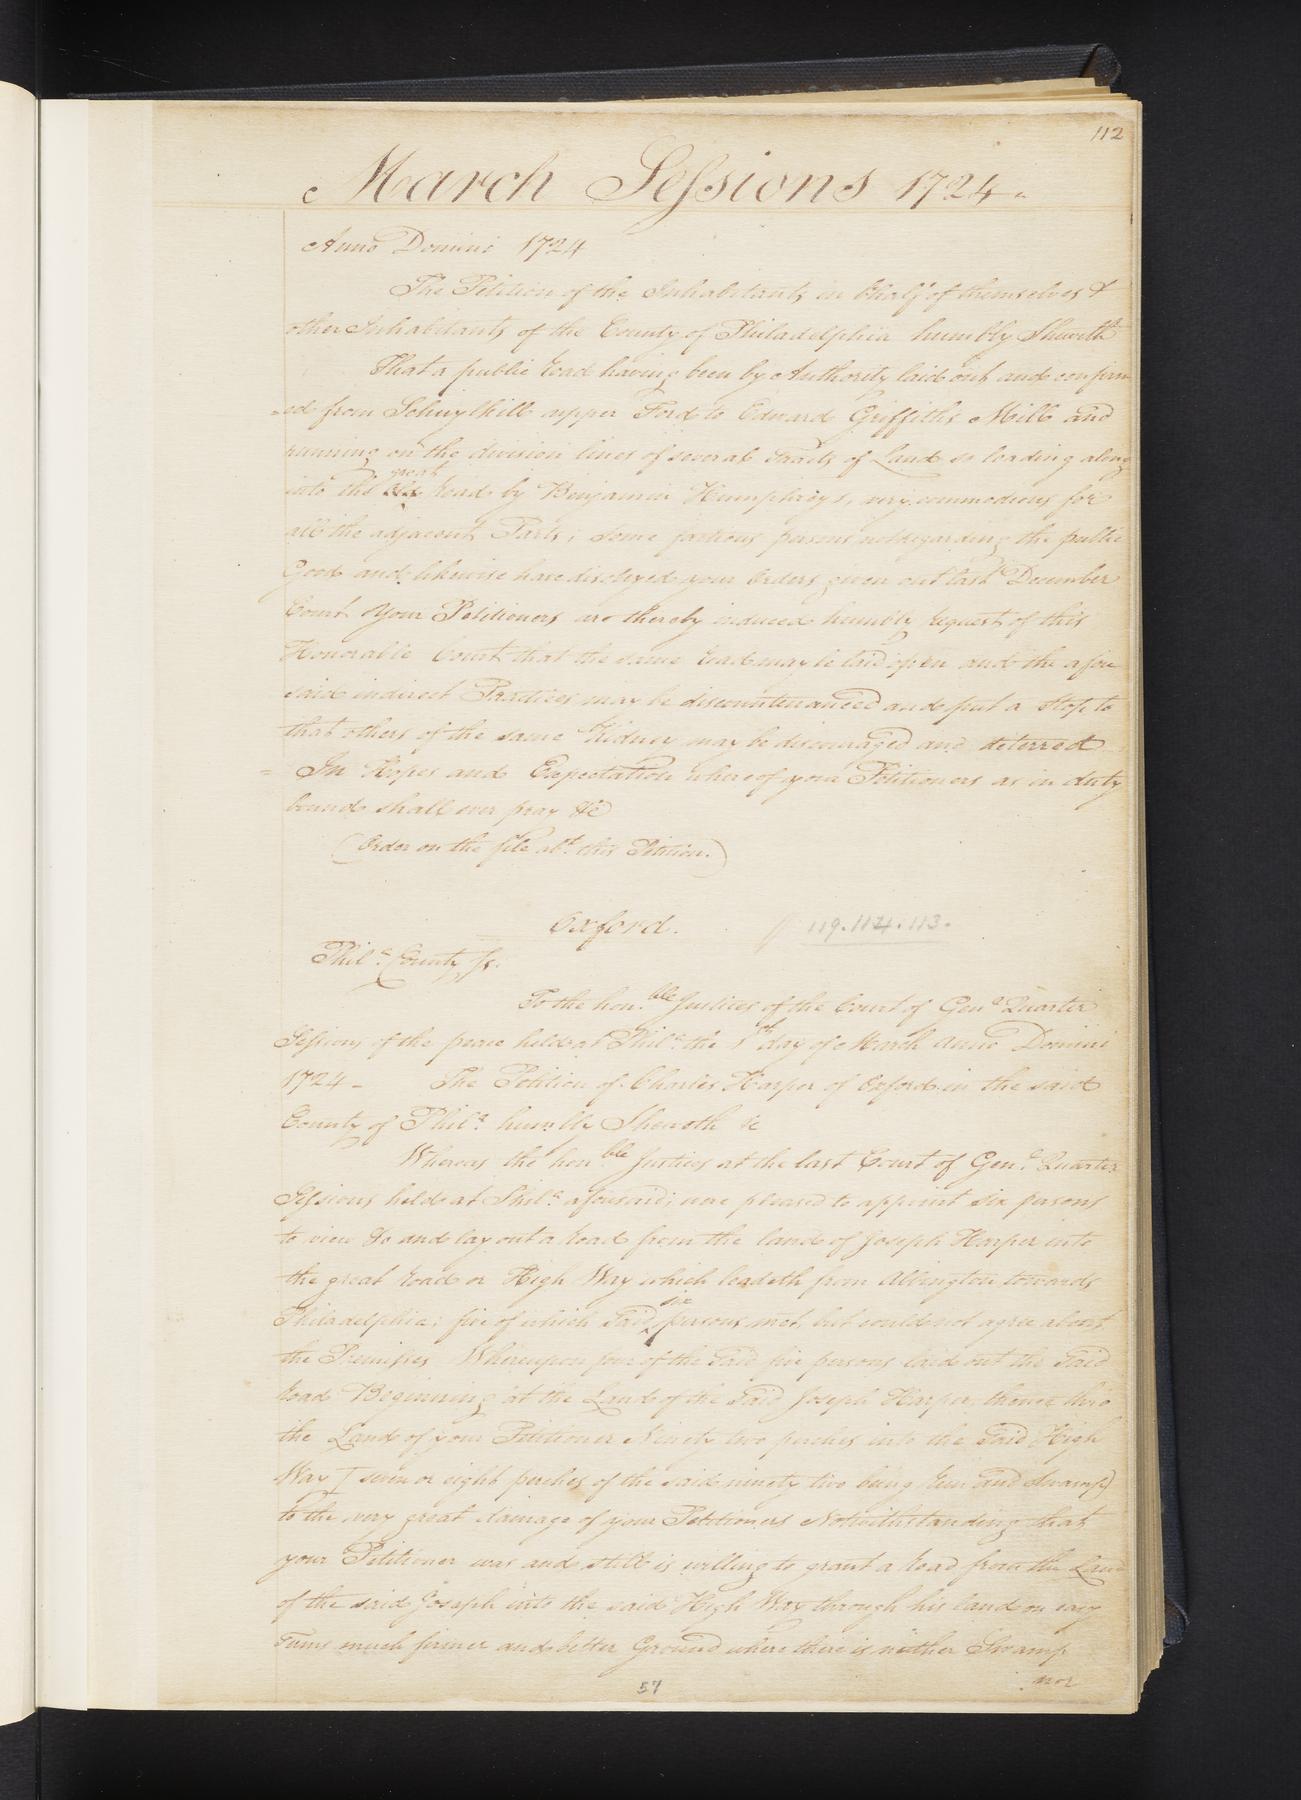 112
March Sessions 1724
Anno Domini 1724
The Petition of the Inhabitants in behalf of themselves &
other Inhabitants of the County of Philadelphia humbly Sheweth
That a public road having been by Authority laid out and confirm
=ed from Schuylkill upper Ford to Edward Griffiths Mill and
running on the division lines of several Tracts of Land so leading along
into the great road by Benjamin Humphreys, very commodious for
all the adjacent Parts; some factious persons not regarding the public
Good and likewise have disobeyed your Orders given out last December
Court Your Petitioners are thereby induced humbly request of this
Honorable Court that the same road may be laid open and the afore
said indirect Practices may be discountenanced and put a Stop to
that others of the same Kidney may be discouraged and deterred
= In Hopes and Expectation whereof your Petitioners as in duty
bound shall ever pray &c
(Order on the file abt. this Petition.)
Oxford. 119.114.113.
Phila. County Ss.
To the honble. Justices of the Court of Genl. Quarter
Sessions of the peace held at Phila. the 1st day of March Anno Domini
1724 - The Petition of Charles Harper of Oxford in the said
County of Phila. humbly Sheweth &c
Whereas the honble. Justices at the last Court of Genl. Quarter
Sessions held at Phila. aforesaid; were pleased to appoint six persons
to view & and lay out a road from the land of Joseph Harper into
the great road or High Way which leadeth from Abbington towards
Philadelphia; five of which said six persons met, but could not agree about
the Premisses Whereupon four of the said five persons laid out the said
road Beginning at the Land of the said Joseph Harper, thence thro
the Land of your Petitioner Ninety two perches into the said High
Way [seven or eight perches of the said ninety two being run and Swamp)
to the very great damage of your Petitioners Notwithstanding that
your Petitioner was and still is willing to grant a road from the Land
of the said Joseph into the said High Way through his land on easy
Terms much firmer and better Ground where there is neither Swamp
nor
57